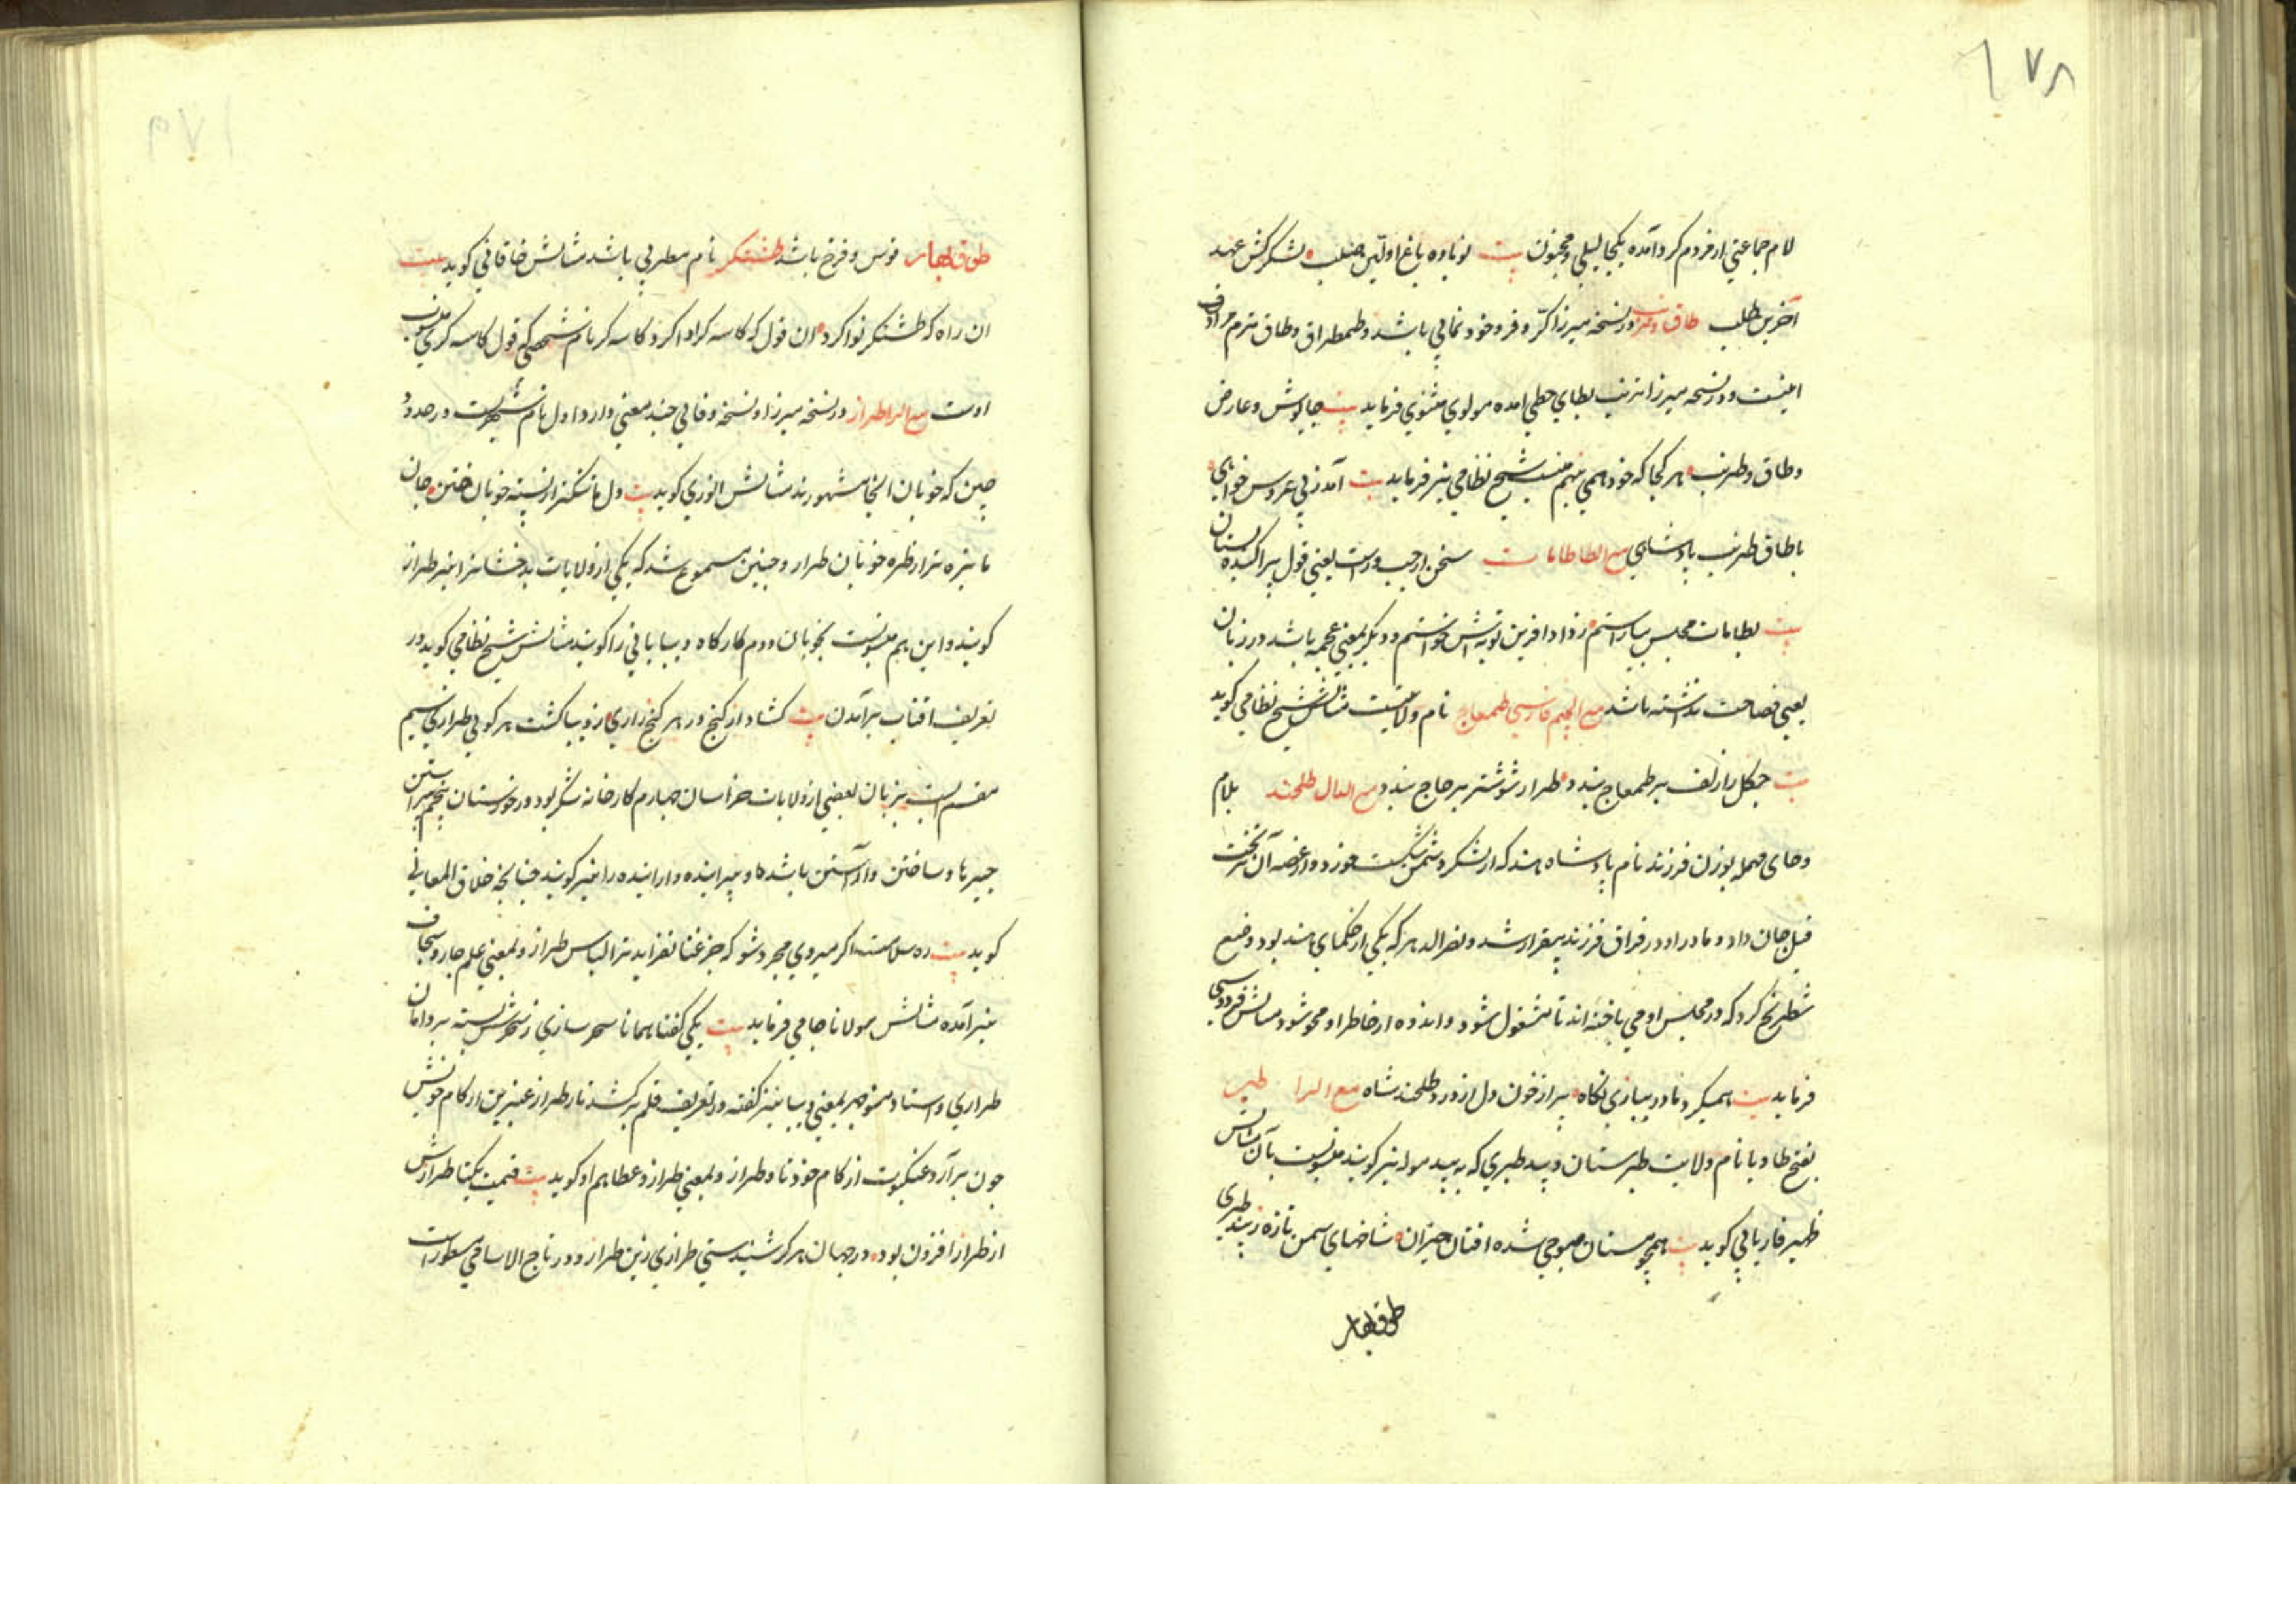 ۱۷۸
لام جماعتی از مردم گرد آمده یکجا لیلی و مجنون بیت نوباوه باغ اولین صلب لشکرکش عهد
آخرین طلب طاق و در نسخه میرزا کر و فر و خودنمایی باشد و طمطراق و طاق ترم مرادف
اینست و در نسخه میرزا بطای حطی آمده مولوی مثنوی فرماید بیت چاوش و عارض
و طاق و طرنب هر کجا که خود همی نهم شیخ نظامی نیز فرماید بیت آمد زپی عروس خواهی
با طاق طرنب پادشاهی مع الطا طامات سخن یعنی قول پراکنده
بیت بطامات مجلس بیاراستم ز داد آفرین توبه اش خواستم و دیگر بمعنی عجمه باشد در زبان
یعنی فصاحت نداشته باشد مع الجیم فارسی طمغاج نام ولایتیست مثالش شیخ نظامی گوید
بیت چگل را زلف بر طمغاج بندد طراز شوشتر بر چاچ بندد مع الدال طلحند بلام
و حای مهمله بوزن فرزند نام پادشاه هند که از لشکر دشمن شکست خورد و از غصه آن بر تخت
فیل جان داد و مادر او در فراق فرزند بیقرار شد و نصرالد هر که یکی از حکمای هند بود وضع
شطرنج کرد که در مجلس او می باخته اند تا مشغول شود و اندوه از خاطر او محو شود مثالش فردوسی
فرماید بیت همیکرد مادر ببازی نگاه پر از خون دل از درد طلحند شاه مع الرا طبر
بفتح طا و با نام ولایت طبرستان و بید طبری که به بید موله نیز گویند منسوبست بآن مثالش
ظهیر فاریابی گوید بیت همچو مستان صبوحی شده افتان خیزان شاخهای سمن تازه ز بید طبری
طوق بهار
طوق بهار قوس و قزح باشد طشتگر نام مطربی باشد مثالش خاقانی گوید بیت
ان راه که طشتگر نوا کرد ان قول که کاسه گر ادا کرد کاسه گر نام شخصی که قول کاسه گری منسوب
اوست مع الزا طراز در نسخه میرزا و نسخه وفایی چند معنی دارد اول نام شهریست در حدود
چین که خوبان انجا مشهورند مثالش انوری گوید بیت دل ما تنگتر از پسته خوبان ختن جان
ما تیره تر از طره خوبان طراز و چنین مسموع شد که یکی از ولایات بدخشانرا نیز طراز
گویند و این هم منسوبست بخوبان دوم کارگاه دیبا بافی را گویند مثالش شیخ نظامی گوید در
تعریف افتاب برآمدن بیت گشاد از گنج در هر کنج رازی ز دیبا گشت هر کویی طرازی سیم
مقسم آبست بزبان بعضی از ولایات خراسان چهارم کارخانه شکر بود در خوزستان پنجم پیراستن
چیزها و ساختن و آراستن باشد و پیراینده و آراینده را نیز گویند چنانچه خلاق المعانی
گوید بیت ره سلامت اگر میروی مجرد شو که جز عنا نفزاید ترا لباس طراز و بمعنی علم جامه و سجاف
نیز آمده مثالش مولانا جامی فرماید بیت یکی گفتا همانا سحرسازی ز سحرش بسته بر دامان
طرازی و استاد منوچهر بمعنی دیبا نیز گفته در تعریف قلم برکشد تار طراز عنبرین از کام خویش
چون برآرد عنکبوت از کام خود تار طراز و بمعنی طراز و عطا هم او گوید بیت قیمت یکتا طرازش
از طراز افزون بود در جهان هرگز شنیدستی طرازی زین طراز و در تاج الاسامی مسطور است